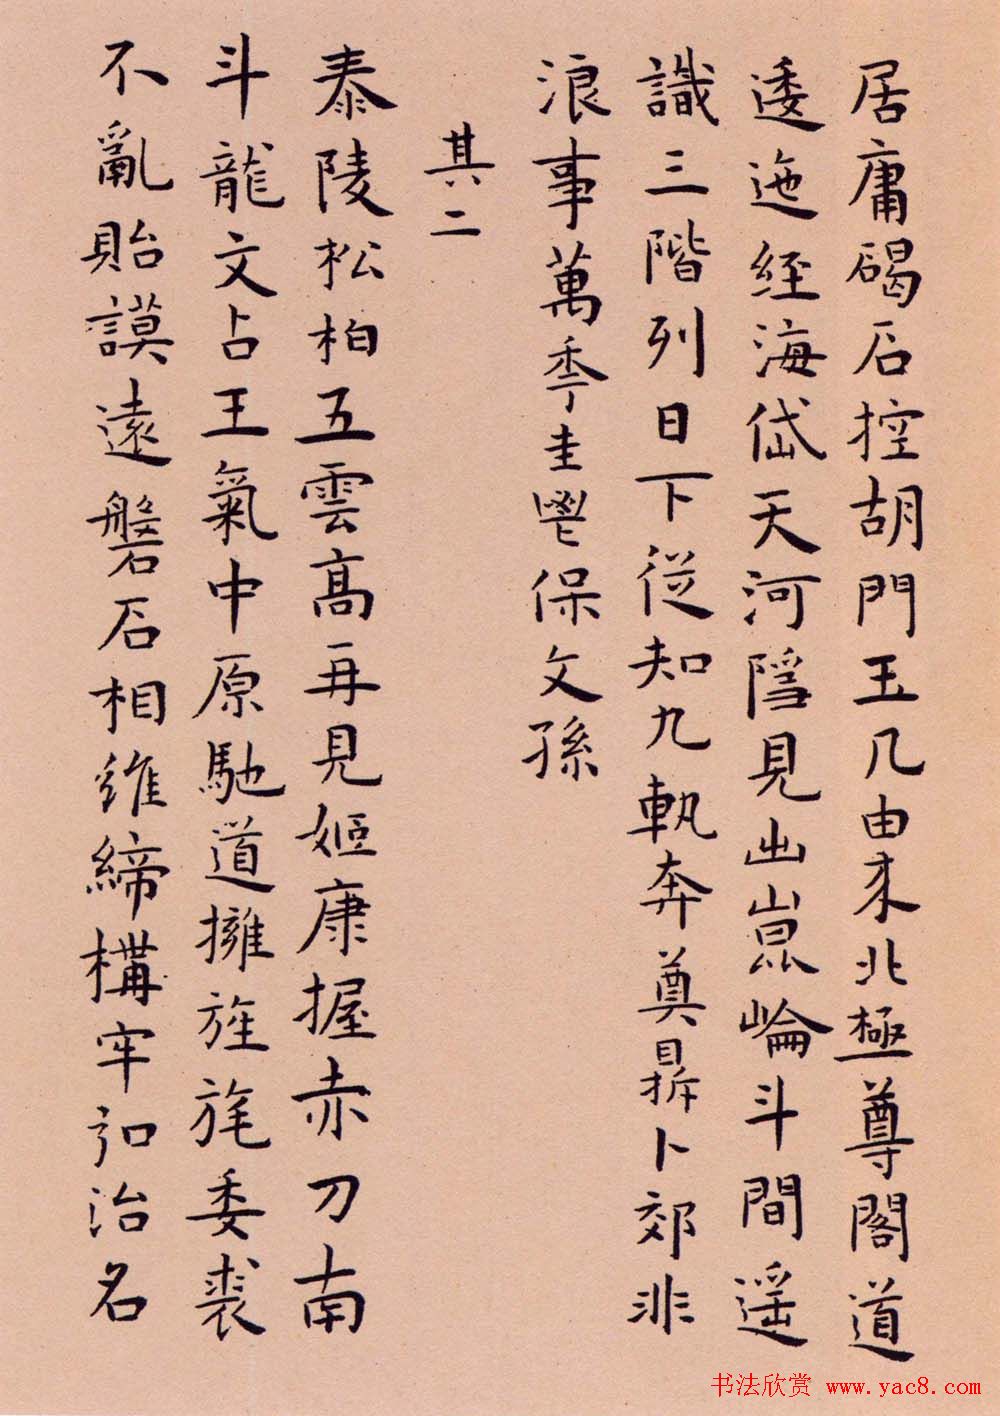 居庸碣石控胡門玉几由来北極尊閣道
逶迤經海岱天河隱見出崑崘斗間遥
識三階列日下從知九軌奔奠鼎卜郊非
浪事萬季圭鬯保文孫
其二
泰陵松柏五雲髙再見姬康握赤刀南
斗龍文占王氣中原馳道擁旌旄委裘
不亂貽謨遠磐石相維締構牢引治名
书法欣赏 www.yac8.com